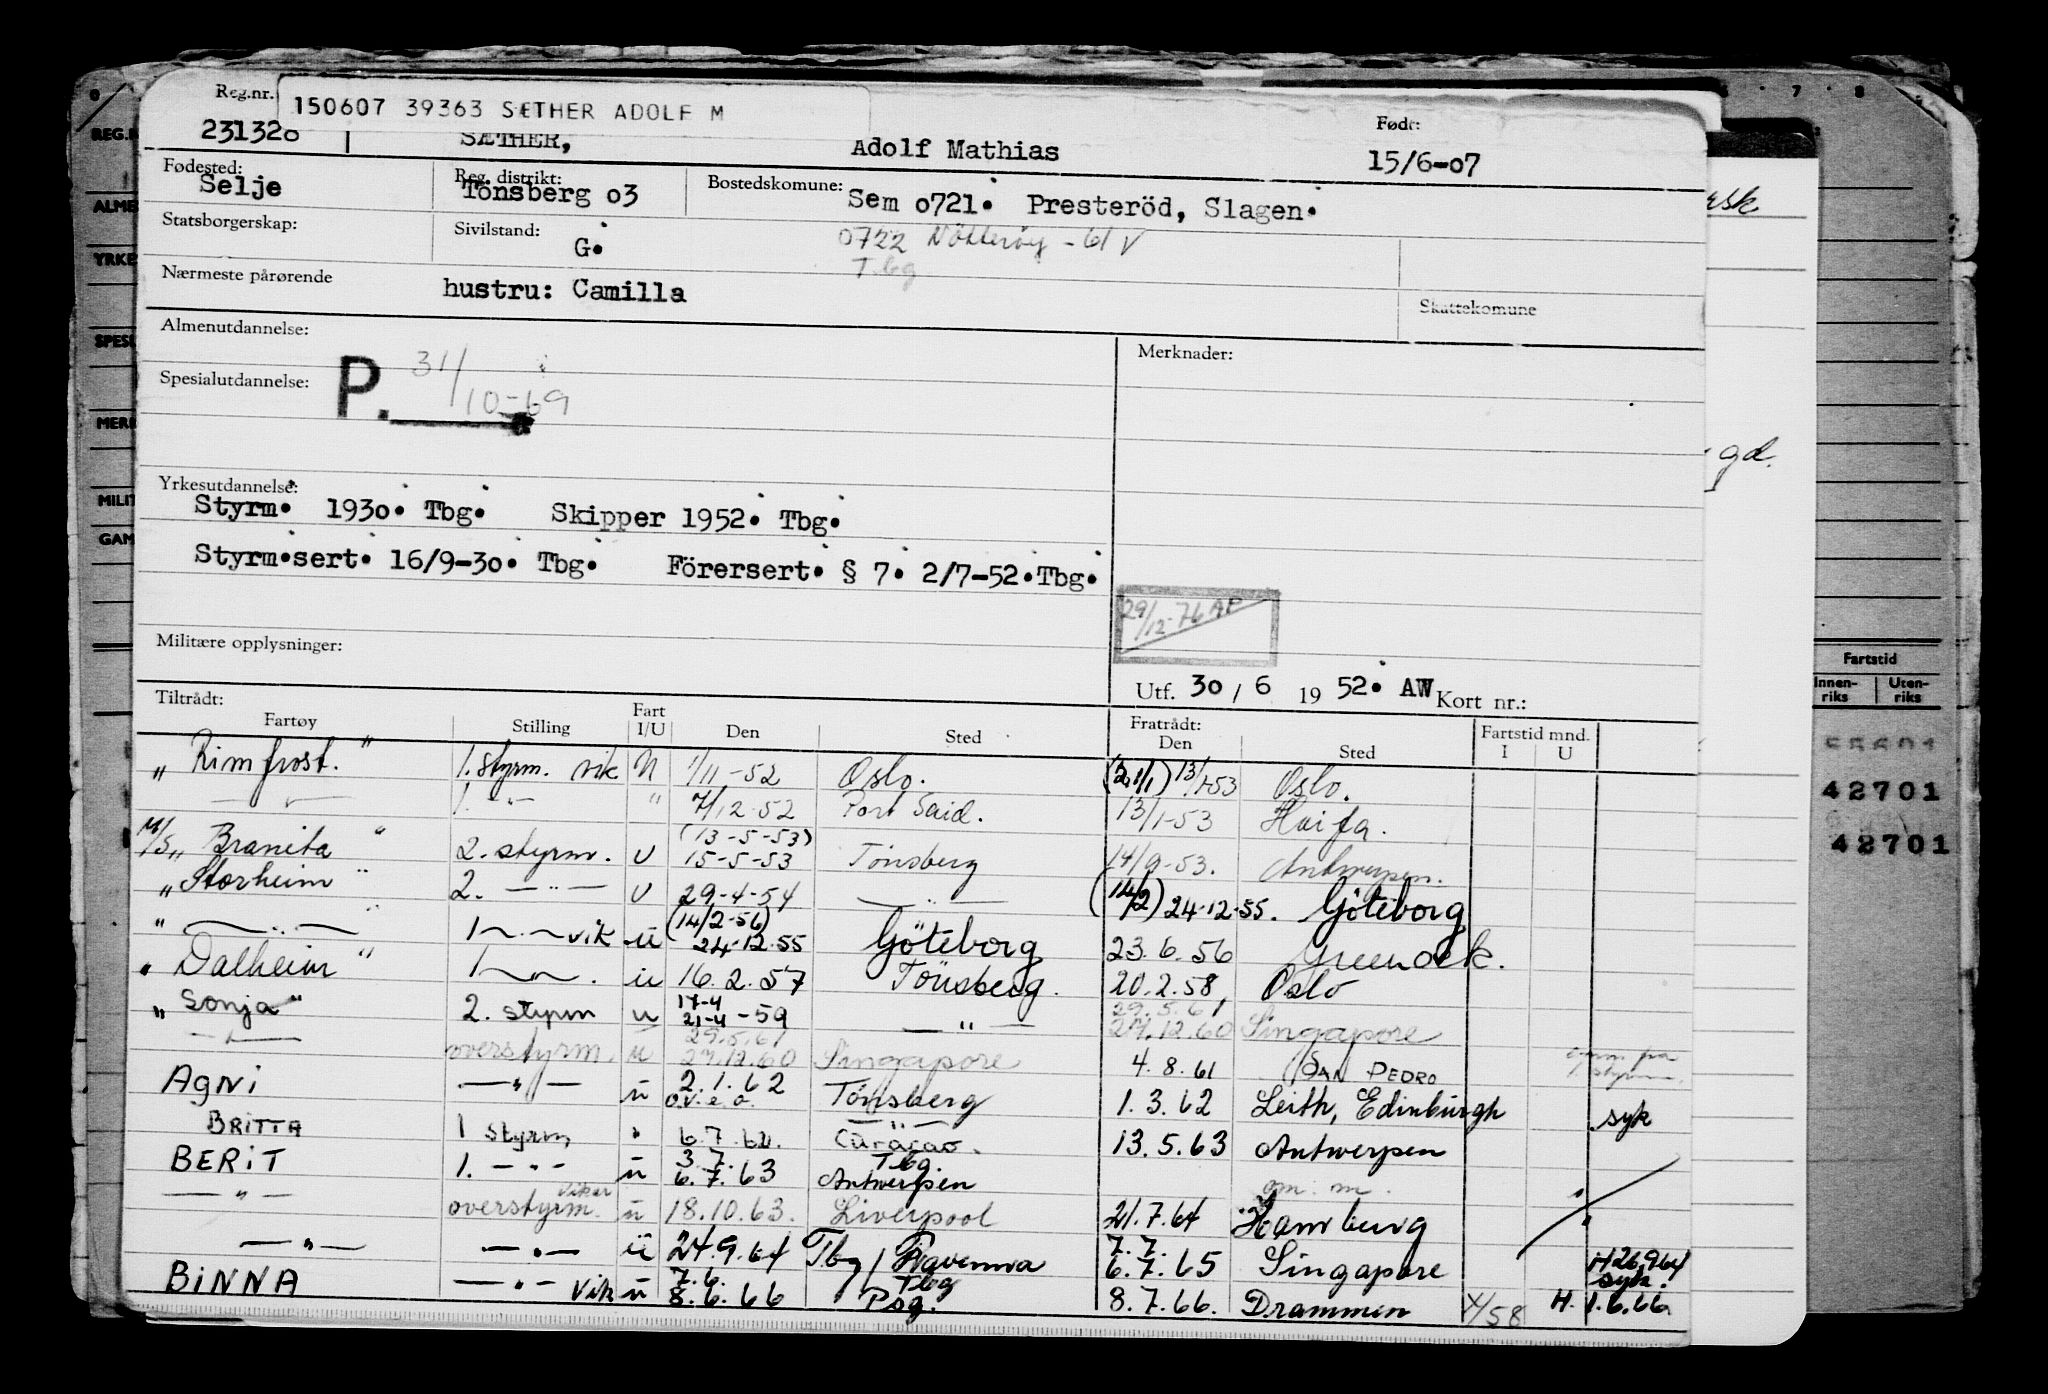 Reg.nr. 150607 39363 SÆTHER ADOLF M
Født:
231328 SÆTHER, Adolf Mathias 15/6-07
Fødested: Reg. distrikt: Bostedskomune:
Selje Tönsberg 03 Sem 0721. Presteröd, Slagen.
Statsborgerskap: Sivilstand: G. 0722 Nötteröy - 61 V
T.bg
Nærmeste pårørende hustru: Camilla
Skattekomune
Almenutdannelse: Merknader:
Spesialutdannelse: P. 31/10-69
Yrkesutdannelse:
Styrm. 1930. Tbg. Skipper 1952. Tbg.
Styrm.sert. 16/9-30. Tbg. Förersert. § 7. 2/7-52. Tbg.
29/12-76 AP
Militære opplysninger:
Utf. 30/6 1952. AW Kort nr.:
Tiltrådt: Fratrådt:
Fartøy Stilling Fart I/U Den Sted Den Sted Fartstid mnd. I U
"Rimfrost." 1. styrm. vik 1/11-52 Oslo. 13/1-53 Oslo.
— " — 1. — " — " 7/12-52 Port Said. 13/1-53 Haifa.
M/S "Branita" 2. styrm. U (13-5-53) 15-5-53 Tönsberg 14/9-53. Antwerpen.
"Storheim" 2. — " — U 29-4-54 — " — (14/2) 24-12-55. Göteborg
" — " — " 1 — " — vik ü (14/2-56) 24-12-55 Göteborg 23.6.56 Greenock.
"Dalheim" 1 — " — . ü 16.2.57 Tönsberg. 20.2.58, Oslo
"Sonja" 2. styrm u 17-4 21-4-59 — " — 29.5.61 27.12.60 Singapore
— " — overstyrm. u 29.5.61 27.12.60 Singapore 4.8.61 SAN PEDRO
AGNI — " — ü 2.1.62 Tönsberg 1.3.62 Leith, Edinburgh syk
BRITTA 1 styrm " 6.7.62. Curacao. 13.5.63 Antwerpen
BERIT 1. — " — ü 3.7. 6.7.63 Tbg. Antwerpen om. m.
— " — overstyrm. vikar ü 18.10.63. Liverpool 21.7.64 Hamburg "
— " — — " — ü 24.9.64 Tbg / Ravenna 7.7. 6.7.65 Singapore syk.
BINNA — " — Vik ü 7.6. 8.6.66 Tbg Psg. 8.7.66. Drammen V/58 H. 1.6.66
REG.
YRKE
MILIT
6 7 8
Fartstid
Innenriks Utenriks
42701
42701